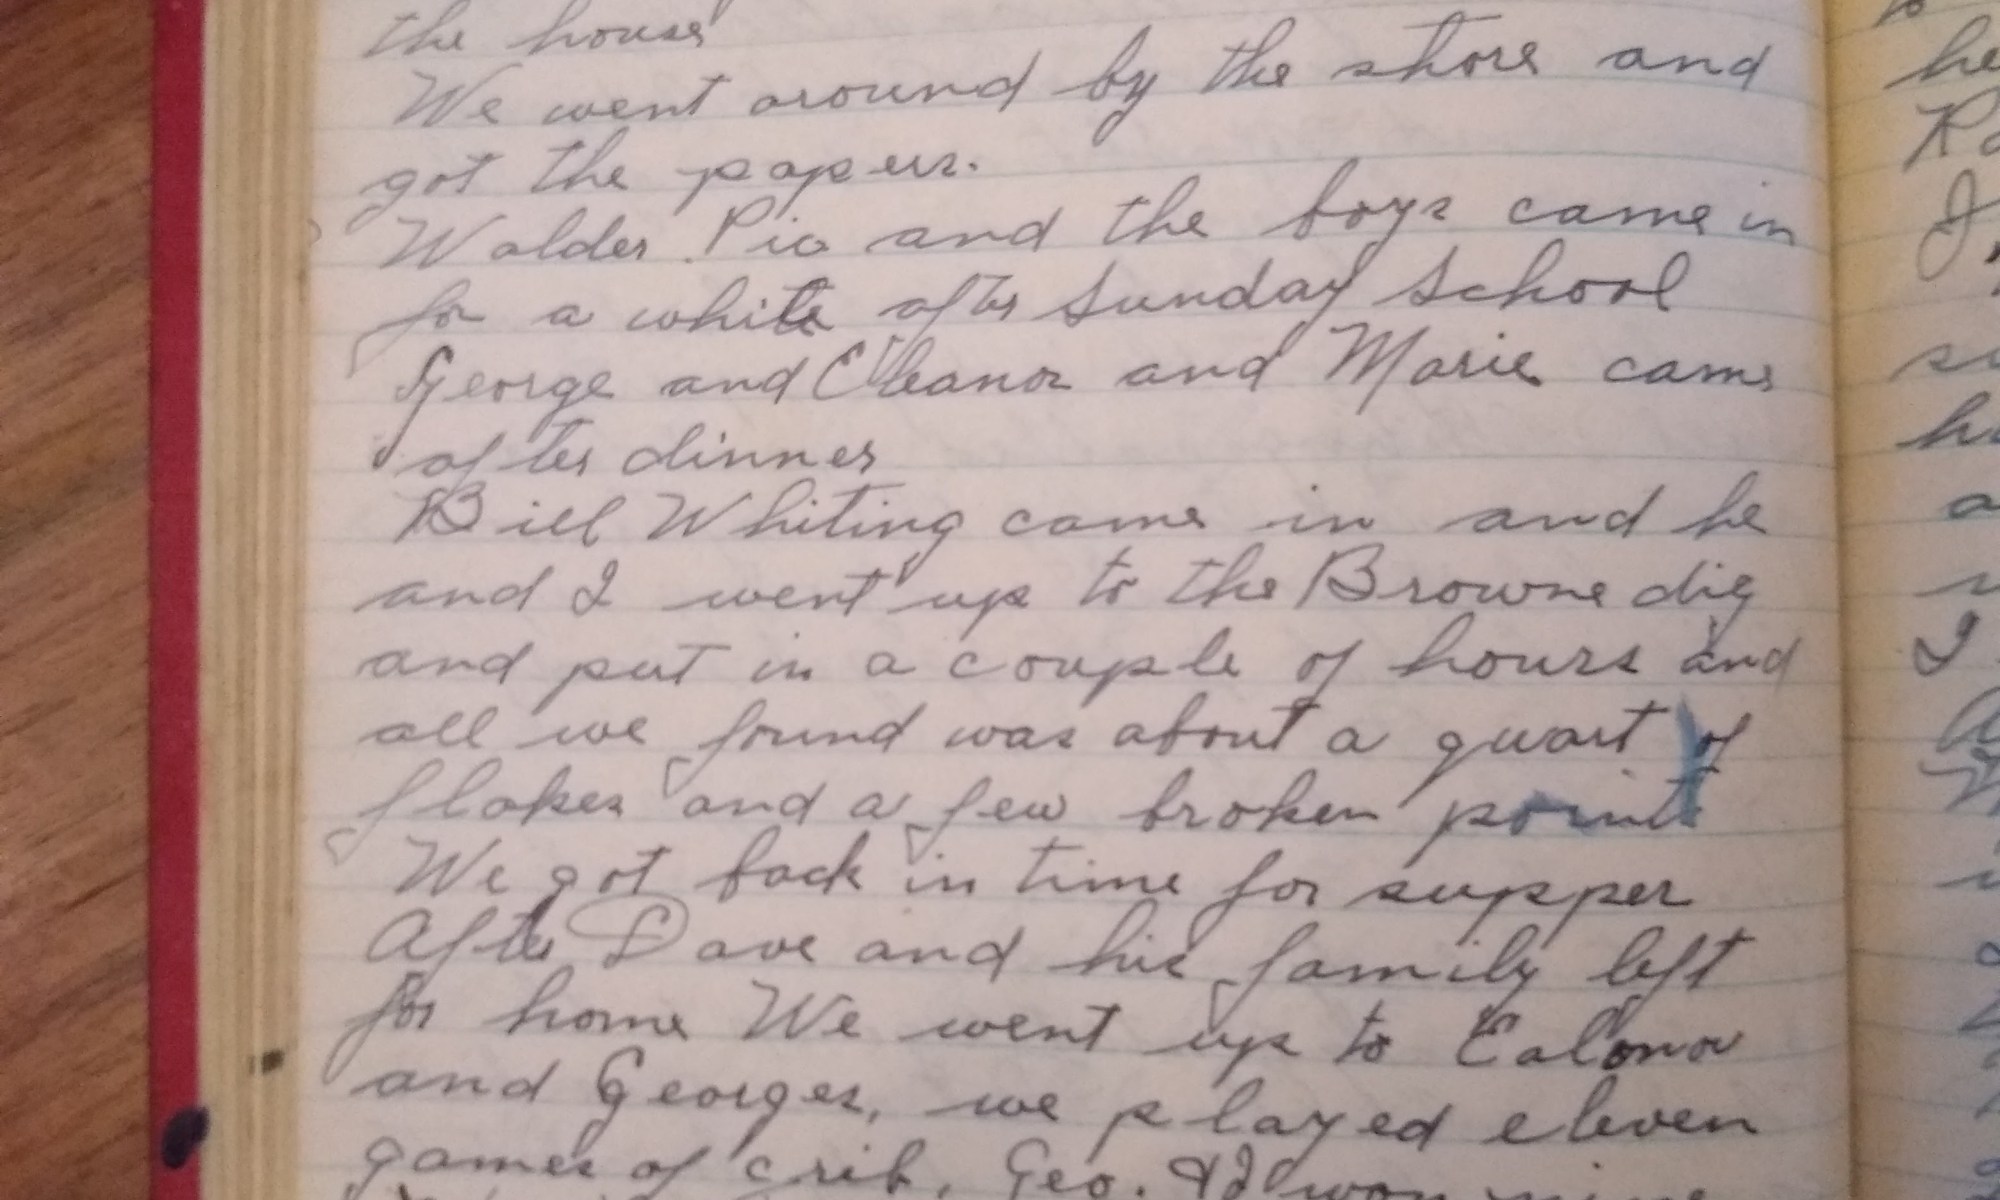 the house
We went around by the store and
got the papers.
Walder. Pia and the boys came in
for a while after Sunday School
George and Eleanor and Marie came
after dinner
Bill Whiting came in and he
and I went up to the Browne dig
and put in a couple of hours and
all we found was about a quart of
flakes and a few broken points
We got back in time for supper
After Dave and his family left
for home We went up to Ealonor
and Georges, we played eleven
games of crib. Geo. & I won nine
to
he
I